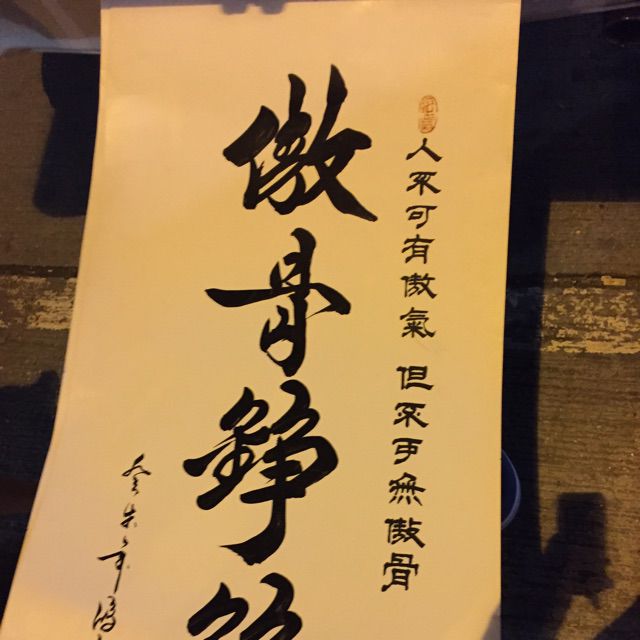 人不可有傲氣 但不可無傲骨
傲骨錚